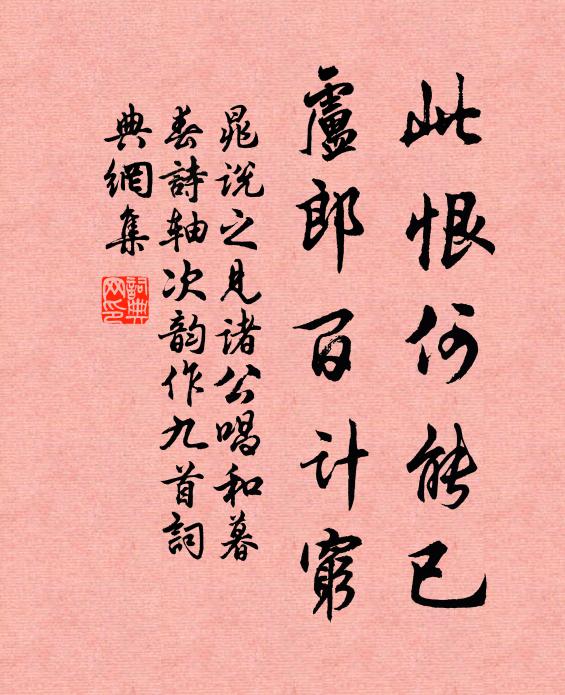 此恨何能已
盧郎百計窮
晁说之見诸公唱和暮
春詩轴次韵作九首詞
典網集
詞典
网印